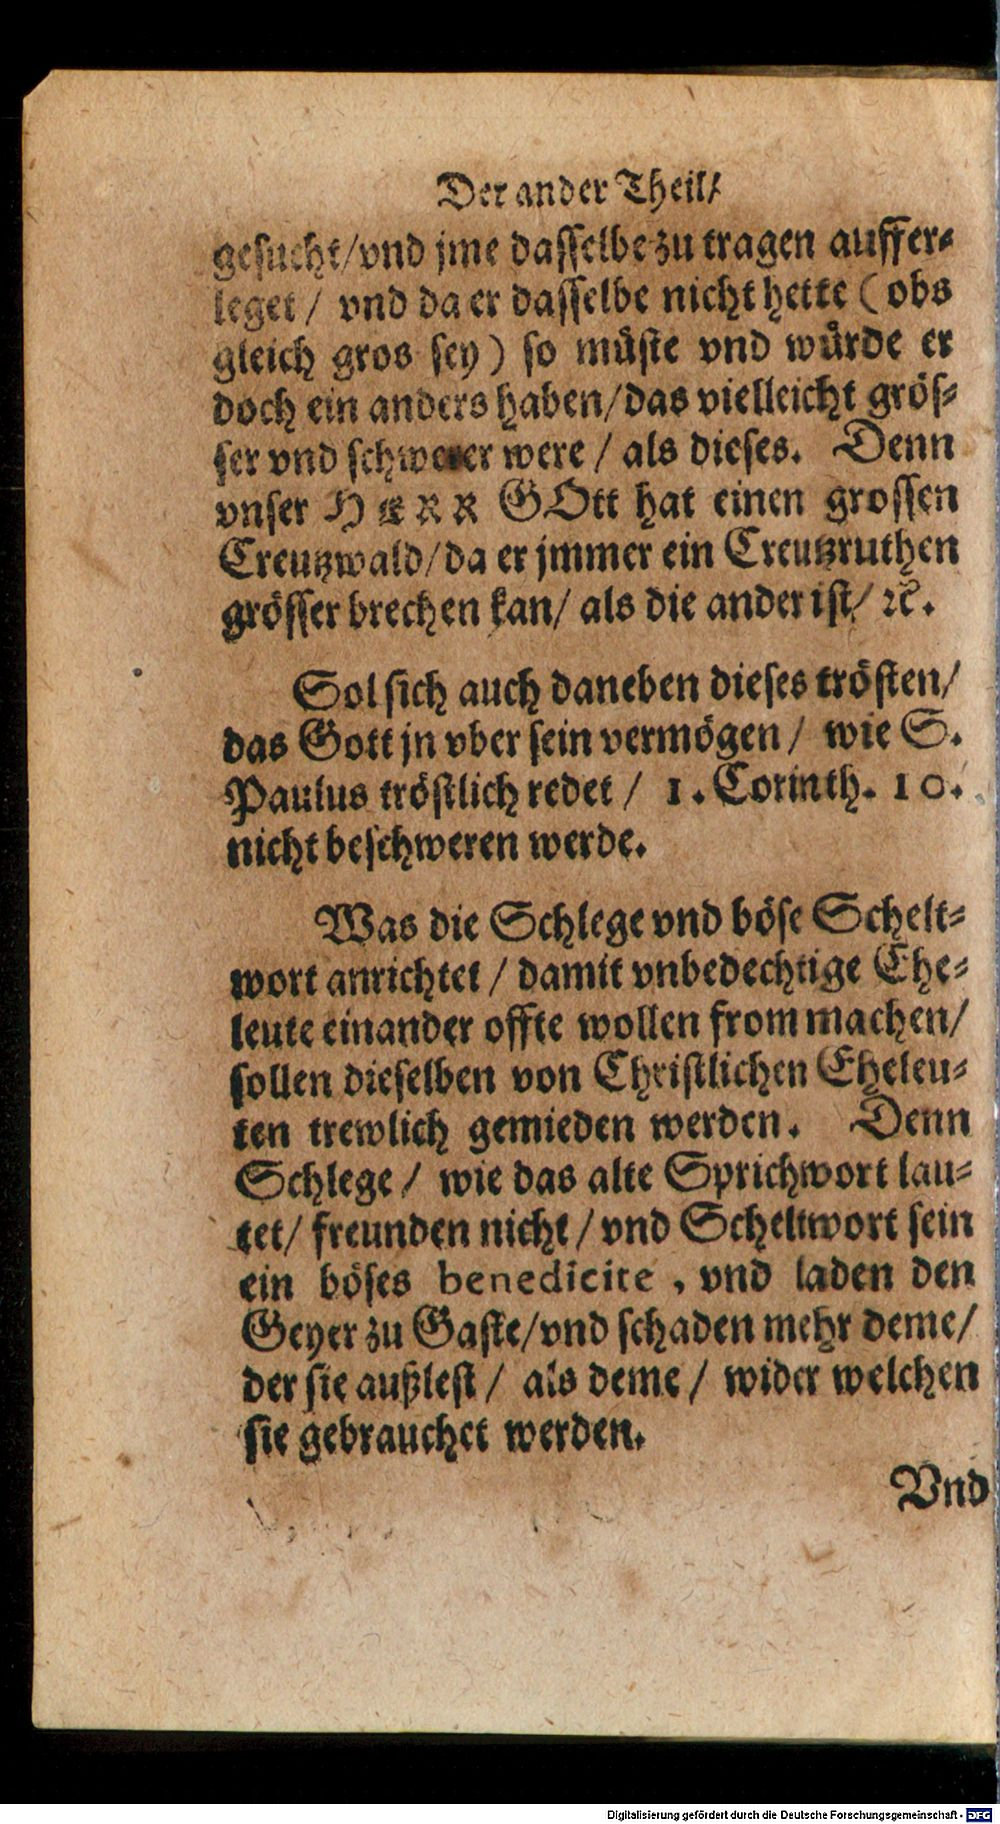 Der ander Theil/
gesucht/vnd jme dasselbe zu tragen auffer⸗
leget / vnd da er dasselbe nicht hette (obs
gleich gros sey) so müste vnd würde er
doch ein anders haben/das vielleicht grös⸗
ser vnd schwerer were / als dieses. Denn
vnser HERR GOtt hat einen grossen
Creutzwald/da er jmmer ein Creutzruthen
grösser brechen kan/ als die ander ist/ ꝛc.
Sol sich auch daneben dieses trösten/
das Gott jn vber sein vermögen / wie S.
Paulus tröstlich redet / 1. Corinth. 10.
nicht beschweren werde.
Was die Schlege vnd böse Schelt⸗
wort anrichtet / damit vnbedechtige Ehe⸗
leute einander offte wollen from machen/
sollen dieselben von Christlichen Eheleu⸗
ten trewlich gemieden werden. Denn
Schlege / wie das alte Sprichwort lau⸗
tet/ freunden nicht / vnd Scheltwort sein
ein böses benedicite, vnd laden den
Geyer zu Gaste/vnd schaden mehr deme/
der sie außlest / als deme / wider welchen
sie gebrauchet werden.
Vnd
Digitalisierung gefördert durch die Deutsche Forschungsgemeinschaft - DFG